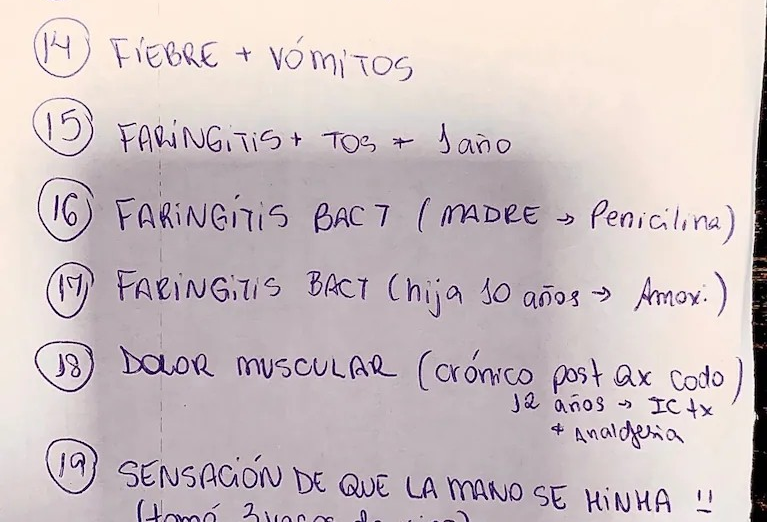 14 FIEBRE + VÓMITOS
15 FARINGITIS + TOS + 1 año
16 FARINGITIS BACT (MADRE → Penicilina)
17 FARINGITIS BACT (hija 10 años → Amox.)
18 DOLOR MUSCULAR (crónico post Qx codo)
12 años → IC tx
+ Analgesia
19 SENSACIÓN DE QUE LA MANO SE HINHA !!
(tomó 3 vasos de vino)